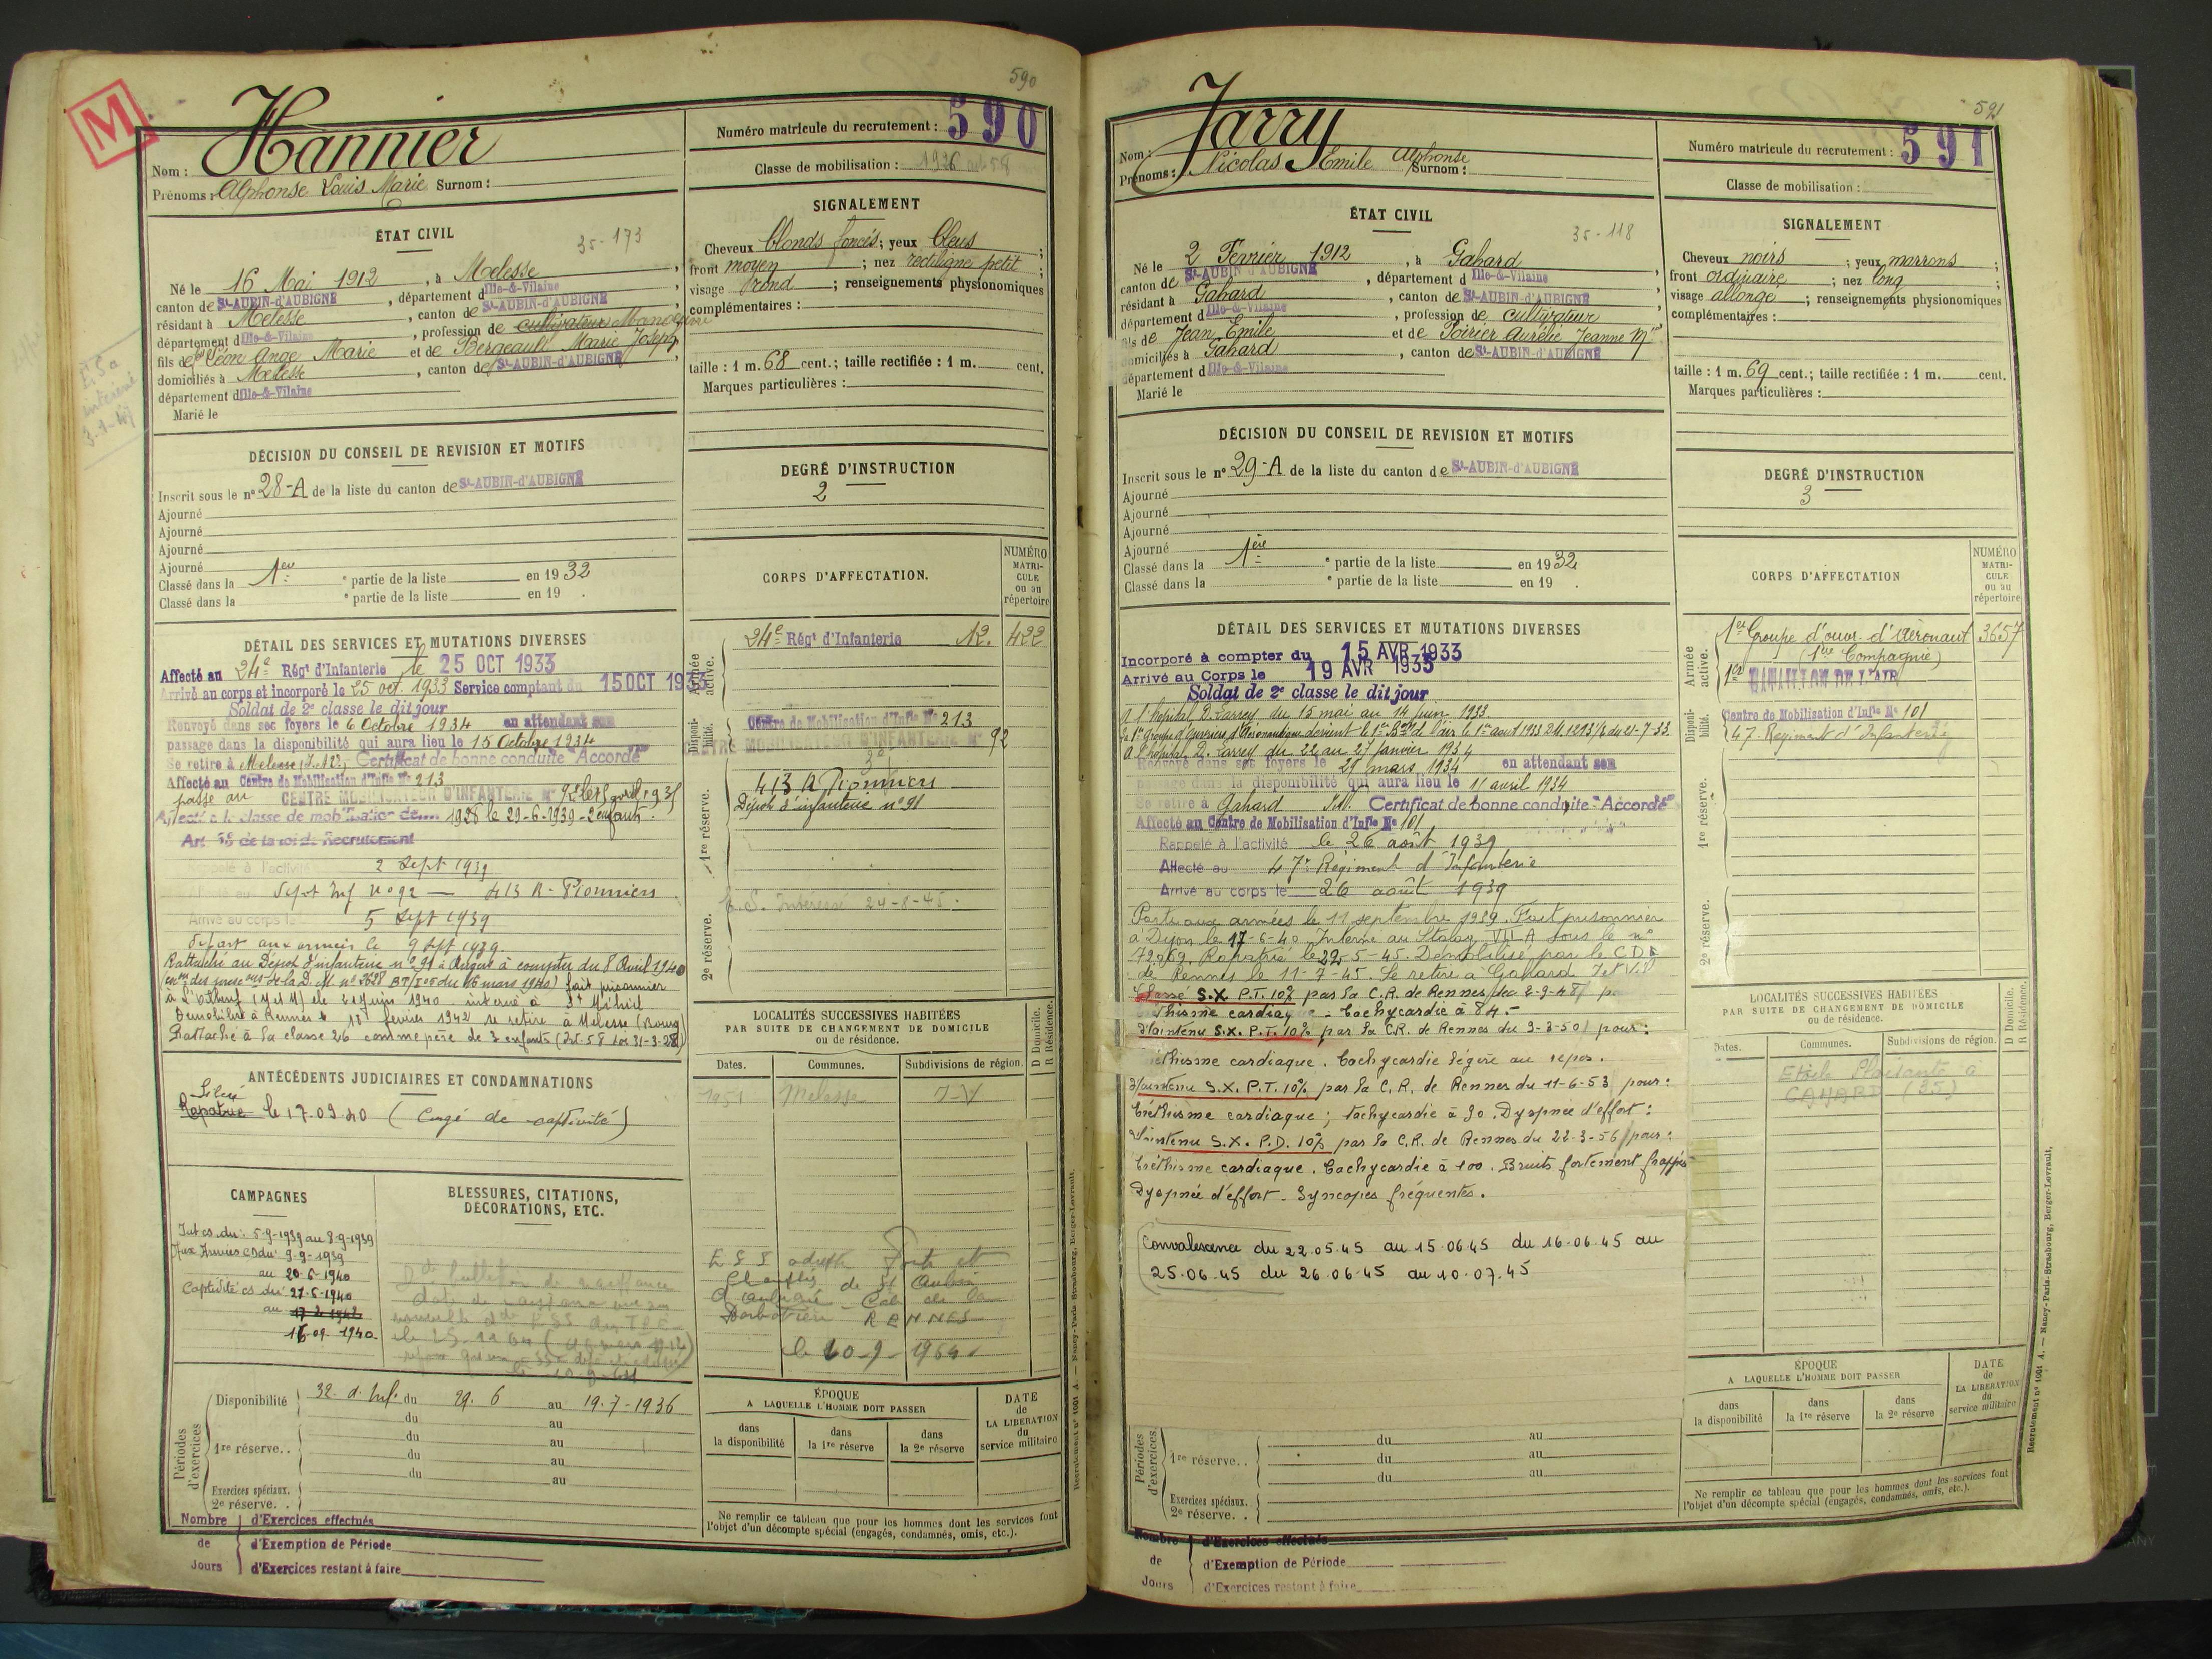 590
M
Hannier
Nom :
Prénoms : Alphonse Louis Marie Surnom :
Numéro matricule du recrutement : 590
Classe de mobilisation : 1926
ÉTAT CIVIL
35-173
Né le 16 Mai 1912, à Melesse,
canton de St-AUBIN-d'AUBIGNÉ, département d'Ille-&-Vilaine
résidant à Melesse, canton de St-AUBIN-d'AUBIGNÉ,
département d'Ille-&-Vilaine, profession de cultivateur Manoeuvre
fils de Léon Ange Marie et de Bergeault Marie Joseph,
domiciliés à Melesse, canton de St-AUBIN-d'AUBIGNÉ,
département d'Ille-&-Vilaine
Marié le
SIGNALEMENT
Cheveux blonds foncés; yeux bleus;
front moyen; nez rectiligne petit;
visage rond; renseignements physionomiques
complémentaires :
taille : 1 m. 68 cent.; taille rectifiée : 1 m. cent.
Marques particulières :
DÉCISION DU CONSEIL DE REVISION ET MOTIFS
Inscrit sous le n° 28-A de la liste du canton de St-AUBIN-d'AUBIGNÉ
Ajourné
Ajourné
Ajourné
Ajourné
Classé dans la 1ère partie de la liste en 1932
Classé dans la e partie de la liste en 19 .
DEGRÉ D'INSTRUCTION
2
CORPS D'AFFECTATION.
NUMÉRO MATRICULE ou au répertoire
Armée active.
24e Régt d'Infanterie 12. 422
Disponibilité.
Centre de Mobilisation d'Infie N° 213
CENTRE MOBILISATEUR D'INFANTERIE N° 92
1re réserve.
413 R Pionniers
Dépôt d'infanterie n° 91
2e réserve.
E.S. Intéressé 24-8-45.
DÉTAIL DES SERVICES ET MUTATIONS DIVERSES
Affecté au 24e Régt d'Infanterie le 25 OCT 1933
Arrivé au corps et incorporé le 25 oct. 1933 Service comptant du 15 OCT 1933
Soldat de 2e classe le dit jour
Renvoyé dans ses foyers le 6 Octobre 1934 en attendant son
passage dans la disponibilité qui aura lieu le 15 Octobre 1934
Se retire à Melesse, Certificat de bonne conduite "Accordé"
Affecté au Centre de Mobilisation d'Infie N° 213
passé au CENTRE MOBILISATEUR D'INFANTERIE N° 92
Affecté à la classe de mobilisation de 1928 le 29-6-1939 - 2 enfants.
Art 58 de la loi de Recrutement
Rappelé à l'activité 2 Sept 1939
Dépôt Inf n° 92 — 413 R. Pionniers
Arrivé au corps le 5 Sept 1939
Départ aux armées le 9 Sept 1939.
Rattaché au Dépôt d'infanterie n° 91 à Angers à compter du 8 Avril 1940
du 16 mars 1940) fait prisonnier
interné à St Mihiel
Démobilisé à Rennes le 18 février 1942 se retire à Melesse (Bourg)
Rattaché à la classe 26 comme père de 3 enfants (Art. 58 Loi 31-3-28)
ANTÉCÉDENTS JUDICIAIRES ET CONDAMNATIONS
Libéré
Rapatrié le 17.09.40 (Congé de captivité)
LOCALITÉS SUCCESSIVES HABITÉES
PAR SUITE DE CHANGEMENT DE DOMICILE
ou de résidence.
D Domicile. R Résidence.
Dates. Communes. Subdivisions de région.
1951 Melesse I-V
CAMPAGNES
Int cs du : 5-9-1939 au 8-9-1939
Aux Armées cs du 9-9-1939
au 20-6-1940
Captivité cs du 21-6-1940
au 17-2-1942
16-09-1940
BLESSURES, CITATIONS,
DÉCORATIONS, ETC.
RENNES
le 10-9-1964
Périodes d'exercices
Disponibilité 32. d. Inf. du 29.6 au 19-7-1936
du au
1re réserve.. du au
du au
du au
Exercices spéciaux.
2e réserve. .
ÉPOQUE
A LAQUELLE L'HOMME DOIT PASSER
dans la disponibilité
dans la 1re réserve
dans la 2e réserve
DATE de LA LIBÉRATION du service militaire
Ne remplir ce tableau que pour les hommes dont les services font
l'objet d'un décompte spécial (engagés, condamnés, omis, etc.).
Nombre de Jours
d'Exercices effectués
d'Exemption de Période
d'Exercices restant à faire
Recrutement n° 1001 A. — Nancy-Paris-Strasbourg, Berger-Levrault.
591
Jarry
Nom :
Prénoms : Nicolas Emile Alphonse
Surnom :
Numéro matricule du recrutement : 591
Classe de mobilisation :
ÉTAT CIVIL
35-118
Né le 2 Février 1912, à Gahard
canton de St-AUBIN-d'AUBIGNÉ, département d'Ille-&-Vilaine,
résidant à Gahard, canton de St-AUBIN-d'AUBIGNÉ,
département d'Ille-&-Vilaine, profession de cultivateur
fils de Jean Emile et de Poirier Aurélie Jeanne Mie
domiciliés à Gahard, canton de St-AUBIN-d'AUBIGNÉ
département d'Ille-&-Vilaine
Marié le
SIGNALEMENT
Cheveux noirs; yeux marrons;
front ordinaire; nez long
visage allongé; renseignements physionomiques
complémentaires :
taille : 1 m. 69 cent.; taille rectifiée : 1 m. cent.
Marques particulières :
DÉCISION DU CONSEIL DE REVISION ET MOTIFS
Inscrit sous le n° 29-A de la liste du canton de St-AUBIN-d'AUBIGNÉ
Ajourné
Ajourné
Ajourné
Ajourné
Classé dans la 1ère partie de la liste en 1932
Classé dans la e partie de la liste en 19 .
DEGRÉ D'INSTRUCTION
3
CORPS D'AFFECTATION
NUMÉRO MATRICULE ou au répertoire
Armée active.
1er Groupe d'ouvr. d'Aéronaut 3657
(1ère Compagnie)
1er BATAILLON DE L'AIR
Disponibilité.
Centre de Mobilisation d'Infie N° 101
47e Régiment d'Infanterie
1re réserve.
2e réserve.
DÉTAIL DES SERVICES ET MUTATIONS DIVERSES
Incorporé à compter du 15 AVR 1933
Arrivé au Corps le 19 AVR 1933
Soldat de 2e classe le dit jour
A l'hôpital D. Larrey du 15 mai au 14 Juin 1933.
Le 1er Groupe d'Ouvriers d'Aéronautique devient le 1er Bon de l'air le 1er août 1933
A l'hôpital D. Larrey du 22 au 27 Janvier 1934
Renvoyé dans ses foyers le 29 mars 1934 en attendant son
passage dans la disponibilité qui aura lieu le 11 avril 1934
Se retire à Gahard I.&V. Certificat de bonne conduite "Accordé"
Affecté au Centre de Mobilisation d'Infie N° 101
Rappelé à l'activité le 26 août 1939
Affecté au 47e Régiment d'Infanterie
Arrivé au corps le 26 août 1939
Parti aux armées le 11 septembre 1939. Fait prisonnier
à Dijon le 17-6-40 Interné au Stalag VII A sous le n°
72969. Rapatrié le 22-5-45. Démobilisé par le C.D.E
de Rennes le 11-7-45. Se retire à Gahard I et V
Classé S.X. P.T. 10% par la C.R. de Rennes dec 2-9-48
thisme cardiaque - Tachycardie à 84.-
Maintenu S.X. P.T. 10% par la C.R. de Rennes du 3-3-50 pour :
éréthisme cardiaque. Tachycardie légère au repos.
Maintenu S.X. P.T. 10% par la C.R. de Rennes du 11-6-53 pour :
Eréthisme cardiaque; tachycardie à 90. Dyspnée d'effort :
Maintenu S.X. P.D. 10% par la C.R. de Rennes du 22-3-56 pour :
Eréthisme cardiaque. Tachycardie à 100. Bruits fortement frappés
Dyspnée d'effort - Syncopes fréquentes.
Convalescence du 22.05.45 au 15.06.45 du 16.06.45 au
25.06.45 du 26.06.45 au 10.07.45
LOCALITÉS SUCCESSIVES HABITÉES
PAR SUITE DE CHANGEMENT DE DOMICILE
ou de résidence.
D Domicile. R Résidence.
Dates. Communes. Subdivisions de région.
GAHARD (35)
ÉPOQUE
A LAQUELLE L'HOMME DOIT PASSER
dans la disponibilité
dans la 1re réserve
dans la 2e réserve
DATE de LA LIBÉRATION du service militaire
Périodes d'exercices
du au
1re réserve.. du au
du au
Exercices spéciaux.
2e réserve. .
Ne remplir ce tableau que pour les hommes dont les services font
l'objet d'un décompte spécial (engagés, condamnés, omis, etc.).
Nombre de Jours
d'Exercices effectués
d'Exemption de Période
d'Exercices restant à faire
Recrutement n° 1001 A. — Nancy-Paris-Strasbourg, Berger-Levrault.